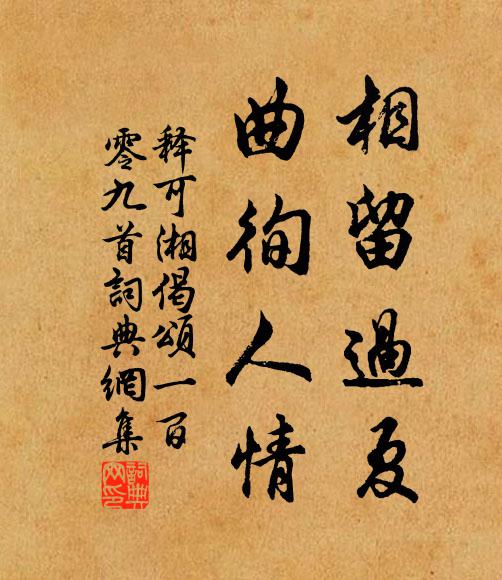 相留過夏
曲徇人情
釋可湘偈頌一百
零九首詞典網集
詞典网印